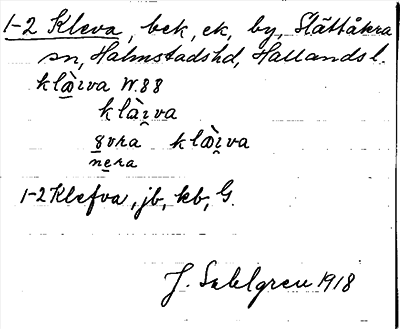 1-2 Kleva, bek, ek, by, Slättåkra
sn, Halmstadshd, Hallands l.
klàɪva W.88
klàɪ̯va
ɞvra klàɪ̯va
nera
1-2 Klefva, jb, kb, G.
J. Sahlgren 1918